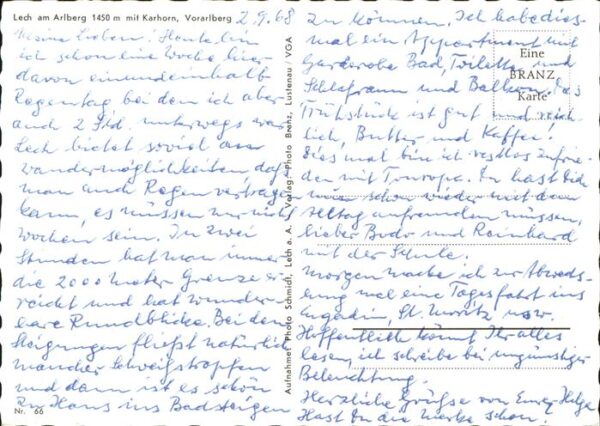 Lech am Arlberg 1450 m mit Karhorn, Vorarlberg
2.9.68
Meine Lieben! Heute bin
ich schon eine Woche hier
davon eineinhalb
Regentag, bei dem ich aber
auch 2 Std. unterwegs war
Lech bietet soviel an
Wandermöglichkeiten, daß
man auch Regen vertragen
kann, es müssen nur nicht
Wochen sein. In zwei
Stunden hat man immer
die 2000 Meter Grenze er-
reicht und hat wunder-
bare Rundblicke. Bei den
Steigungen fließt natürlich
mancher Schweißtropfen
und dann ist es schön
zu Haus ins Bad steigen
Nr. 66
Aufnahme: Photo Schmidt, Lech a. A. Verlag: Photo Branz, Lustenau / VGA
zu können. Ich habe dies-
mal ein Appartement mit
Garderobe Bad, Toilette und
Schlafraum und Balkon. Das
Frühstück ist gut und reich-
lich, Butter und Kaffee!
Diesmal bin ich restlos zufrie-
den mit Du hast Dich
nun schon wieder mit dem
Alltag anfreunden müssen,
lieber Bodo und Reinhard
mit der Schule.
Morgen mache ich zur Abwechs-
lung mal eine Tagesfahrt ins
Engadin, St. Moritz usw.
Hoffentlich könnt Ihr alles
lesen, ich schreibe bei ungünstiger
Beleuchtung.
Herzliche Grüße von Eurer Helga
Hast Du die schon?
Eine
BRANZ
Karte